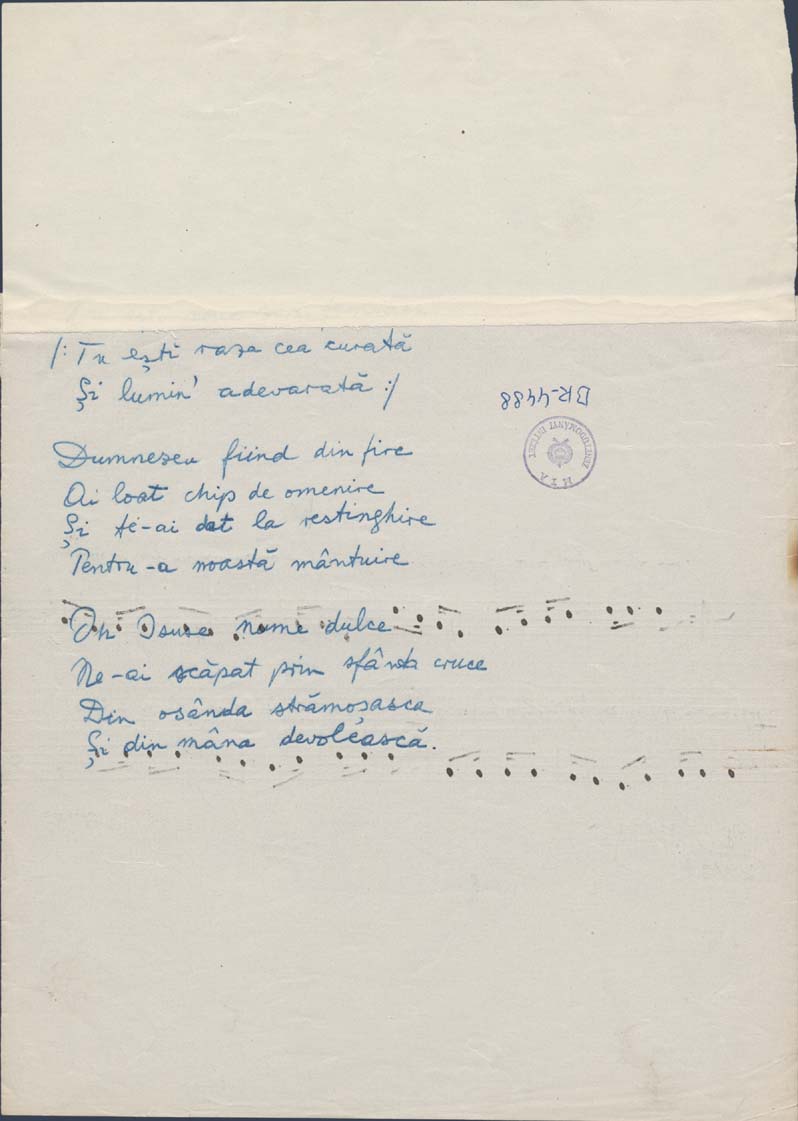 /: Tu ești raza cea curată
Și lumin' adevarată :/
BR-4488
ZENETUDOMÁNYI INTÉZET
MTA
Dumnezeu fiind din fire
Ai loat chip de omenire
Și te-ai dat la restinghire
Pentru-a noastă mântuire
Oh Isuse nume dulce
Ne-ai scăpat prin sfânta cruce
Din osânda strămoșasca
Și din mâna devolească.